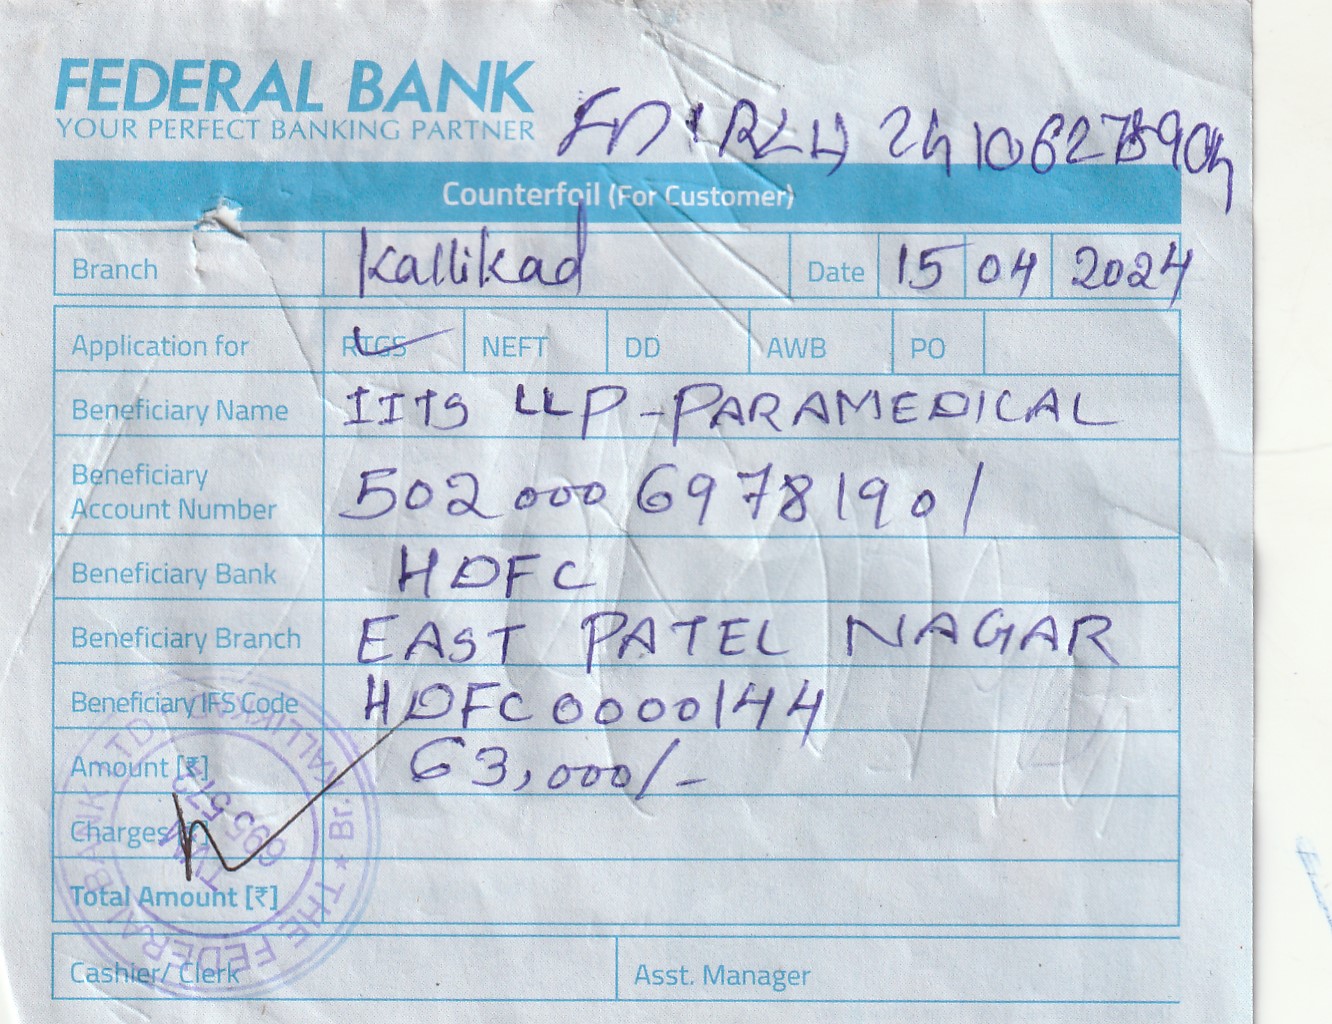 FEDERAL BANK
YOUR PERFECT BANKING PARTNER
Counterfoil (For Customer)
Branch Kallikad Date 15 04 2024
Application for RTGS NEFT DD AWB PO
Beneficiary Name IITS LLP - PARAMEDICAL
Beneficiary
Account Number 50200069781901
Beneficiary Bank HDFC
Beneficiary Branch EAST PATEL NAGAR
Beneficiary IFS Code HDFC0000144
Amount [₹] 63,000/-
Charges [₹]
Total Amount [₹]
Cashier/ Clerk Asst. Manager
THE FEDERAL BANK LTD. KALLIKKAD Br.
TVM
695 572